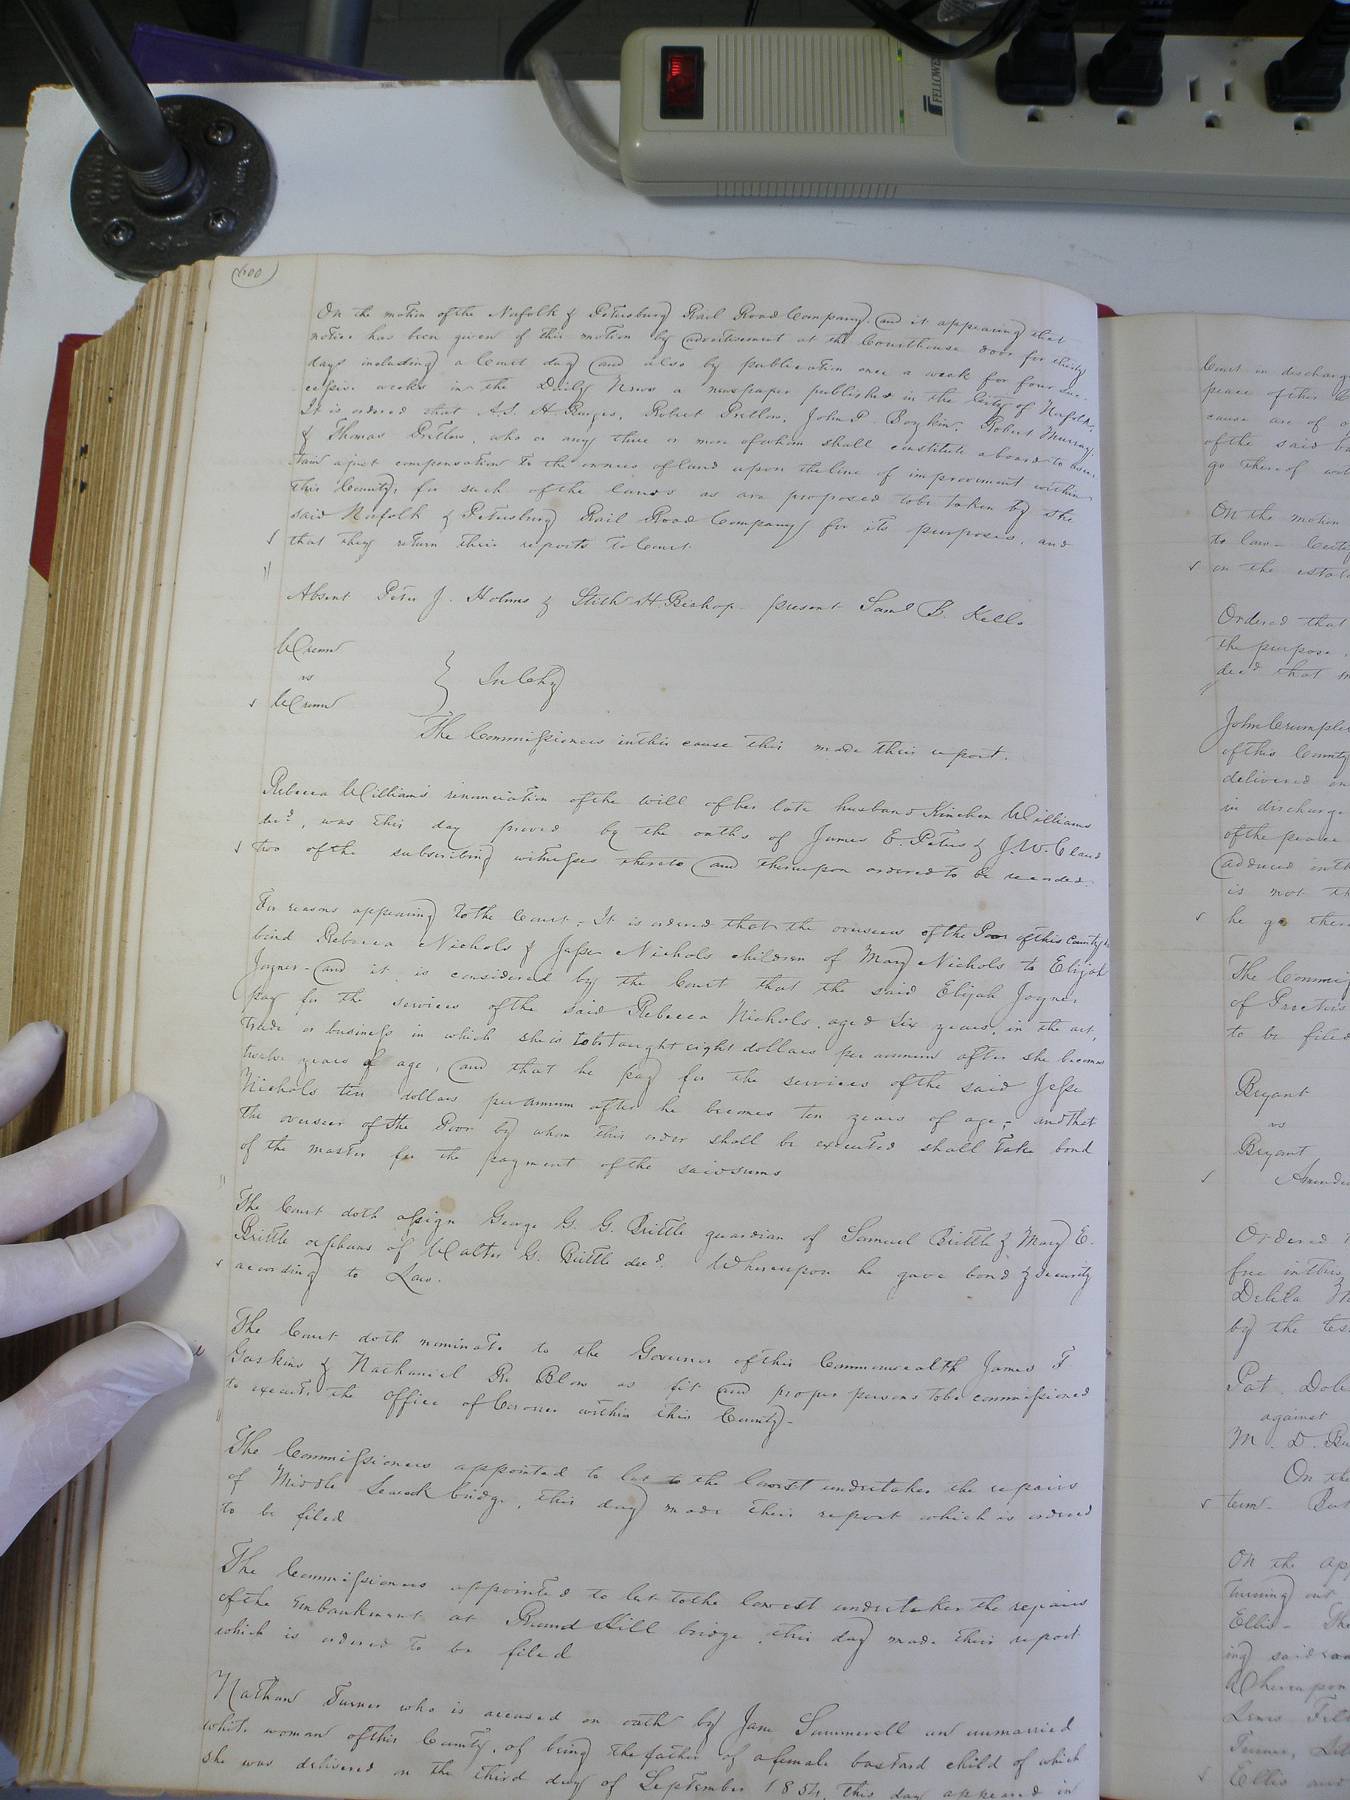 FELLOWES
600
On the motion of the Norfolk & Petersburg Rail Road Company, and it appearing that
notice has been given of this motion by advertisement at the Courthouse door for thirty
days including a Court day and also by publication once a week for four suc-
cessive weeks in the Daily News a newspaper published in the City of Norfolk.
It is ordered that A.S. H. Burges, Robert Pretlow, John P. Boykin, Robert Murray,
& Thomas Pretlow, who or any three or more of whom shall constitute a board to ascer-
tain a just compensation to the owners of land upon the line of improvement within
this County, for such of the lands as are proposed to be taken by the
said Norfolk & Petersburg Rail Road Company for its purposes, and
that they return their reports to Court.
Absent Peter J. Holmes & Stith H. Bishop. present Saml B. Kello
Wrenn
vs
Wrenn
} In Chy
The Commissioners in this cause this made their report.
Rebecca Williams renunciation of the will of her late husband Kinchen Williams
decd, was this day proved by the oaths of James E. Peters & J. W. Claud
two of the subscribing witnesses thereto and thereupon ordered to be recorded.
For reasons appearing to the Court. It is ordered that the overseers of the Poor of this County
bind Rebecca Nichols & Jesse Nichols children of Mary Nichols to Elijah
Joyner and it is considered by the Court that the said Elijah Joyner
pay for the services of the said Rebecca Nichols, aged six years, in the art,
trade or business in which she is to be taught eight dollars per annum after she becomes
twelve years of age, and that he pay for the services of the said Jesse
Nichols ten dollars per annum after he becomes ten years of age; and that
the overseer of the Poor by whom this order shall be executed shall take bond
of the master for the payment of the said sums
The Court doth assign George G. G. Brittle guardian of Samuel Brittle & Mary E.
Brittle orphans of Walter G. Brittle decd. Whereupon he gave bond & security
according to Law.
The Court doth nominate to the Governor of this Commonwealth James F
Gaskins & Nathaniel R. Blow as fit and proper persons to be commissioned
to execute the office of Coroner within this County.
The Commissioners appointed to let to the lowest undertaker the repairs
of Middle Seacock bridge, this day made their report which is ordered
to be filed
The Commissioners appointed to let to the lowest undertaker the repairs
of the embankment at Round Hill bridge, this day made their report
which is ordered to be filed
Nathan Turner who is accused on oath by Jane Summerell an unmarried
white woman of this County, of being the father of a female bastard child of which
she was delivered on the third day of September 1854, this day appeared in
Court in discharge
peace of this
cause are of
of the said
go thereof
On the motion
to law
on the
Ordered that
the purpose
decd that
John Crumpler
of this County
delivered
in discharge
of the peace
adduced
is not
he go
The
of
to be filed
Bryant
vs
Bryant
Ordered
free in this
Delila
by the
Pat.
against
M. D.
On the
term
On the
turning out
Ellis
ing said
Whereupon
Lewis
Turner,
Ellis and